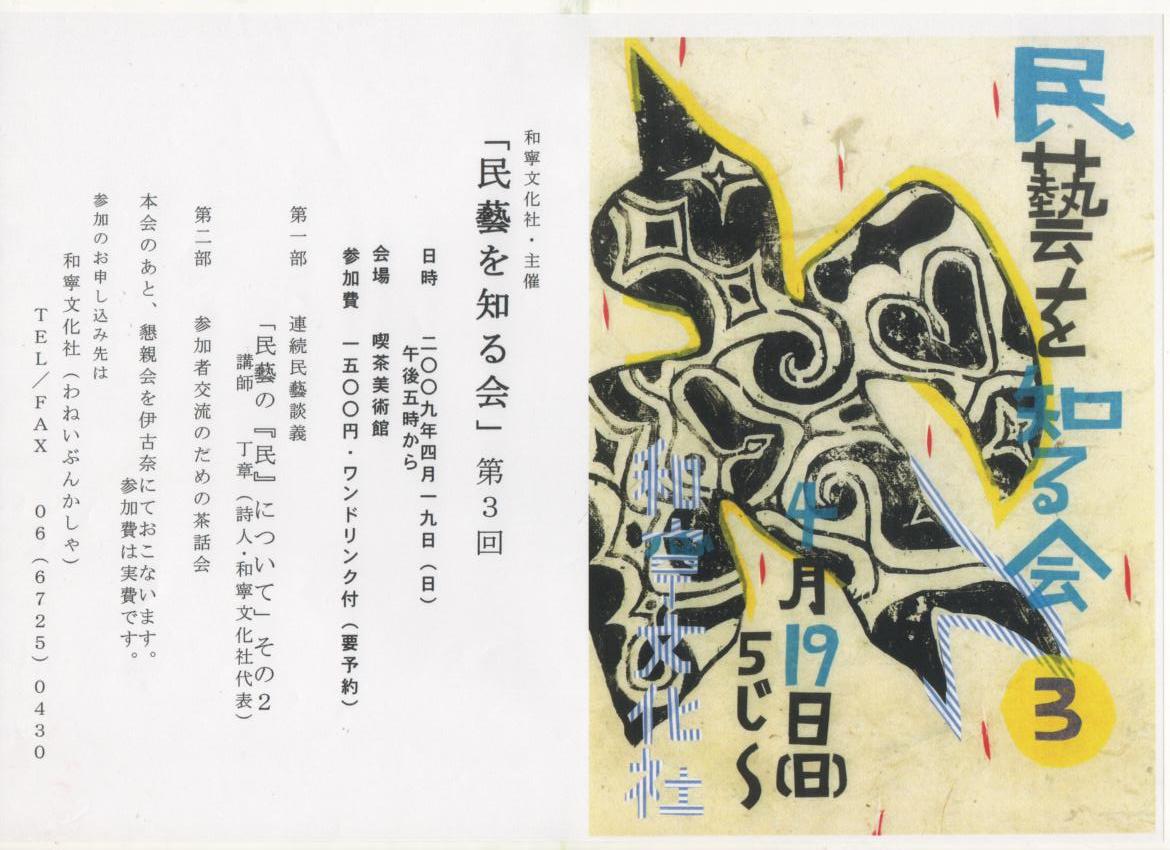 民藝を知る会
3
4月19日(日)
5じ〜
和寧文化社
和寧文化社・主催
「民藝を知る会」第3回
日時　二〇〇九年四月一九日（日）
午後五時から
会場　喫茶美術館
参加費　一五〇〇円・ワンドリンク付（要予約）
第一部　連続民藝談義
「民藝の『民』について」その2
講師　丁章（詩人・和寧文化社代表）
第二部　参加者交流のための茶話会
本会のあと、懇親会を伊古奈にておこないます。
参加費は実費です。
参加のお申し込み先は
和寧文化社（わねいぶんかしゃ）
TEL／FAX　06（6725）0430